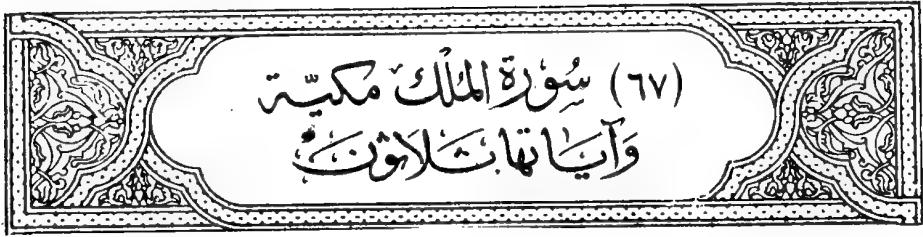 (٦٧) سُورَة المُلْك مَكيّة
وَآيَاتهَا ثَلَاثُونَ